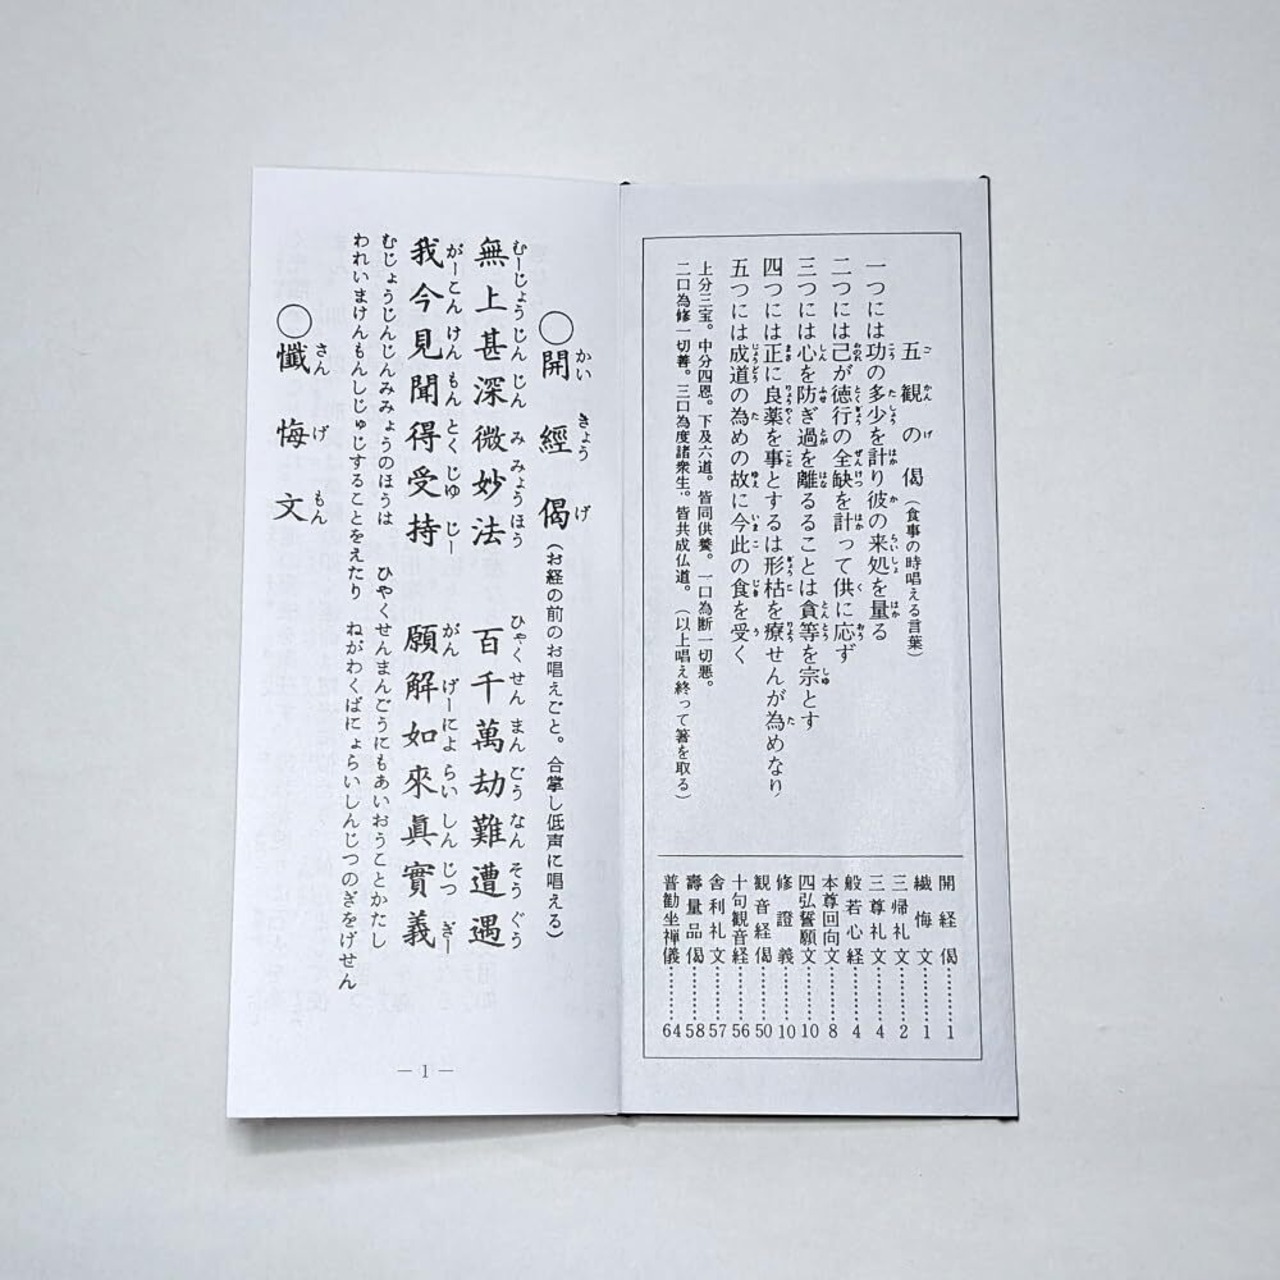 五観の偈(食事の時唱える言葉)
一つには功の多少を計り彼の来処を量る
二つには己が徳行の全缺を計って供に応ず
三つには心を防ぎ過を離るることは貪等を宗とす
四つには正に良薬を事とするは形枯を療せんが為めなり
五つには成道の為めの故に今此の食を受く
上分三宝。中分四恩。下及六道。皆同供養。一口為断一切悪。
二口為修一切善。三口為度諸衆生。皆共成仏道。(以上唱え終って箸を取る)
開経偈…………1
懺悔文…………1
三帰礼文…………2
三尊礼文…………4
般若心経…………4
本尊回向文…………8
四弘誓願文…………10
修證義…………10
観音経偈…………50
十句観音経…………56
舎利礼文…………57
壽量品偈…………58
普勧坐禅儀…………64
○開經偈(お経の前のお唱えごと。合掌し低声に唱える)
かいきょうげ
無上甚深微妙法 百千萬劫難遭遇
むーじょうじんじんみみょうほう ひゃくせんまんごうなんそうぐう
我今見聞得受持 願解如來眞實義
がーこんけんもんとくじゅじー がんげーにょらいしんじつぎー
むじょうじんじんみみょうのほうは ひやくせんまんごうにもあいおうことかたし
われいまけんもんしじゅじすることをえたり ねがわくばにょらいしんじつのぎをげせん
○懺悔文
さんげもん
— 1 —